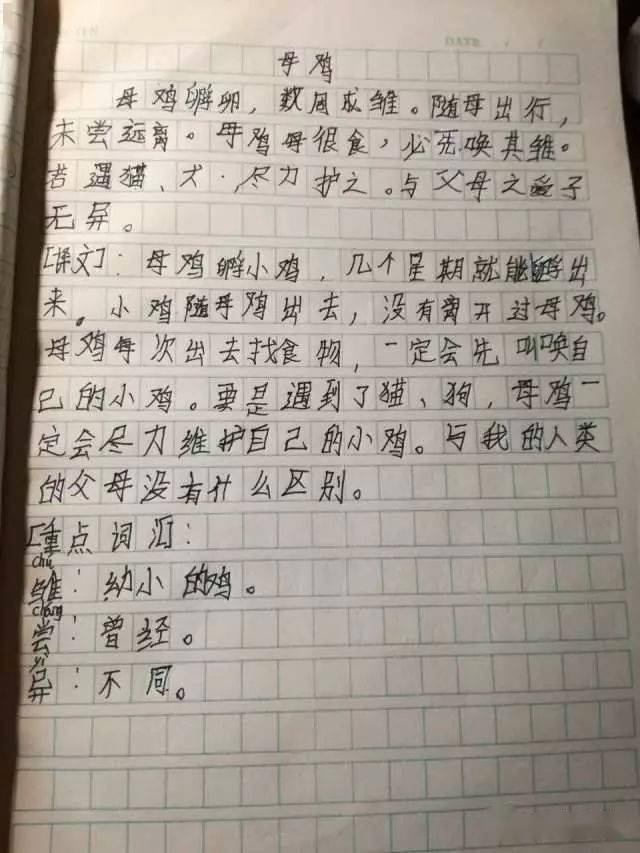 DATE / /
母鸡
母鸡孵卵，数周成雏。随母出行，
未尝远离。母鸡每很食，必先唤其雏。
若遇猫、犬，尽力护之。与父母之爱子
无异。
[译文]：母鸡孵小鸡，几个星期就能孵出
来。小鸡随母鸡出去，没有离开过母鸡。
母鸡每次出去找食物，一定会先叫唤自
己的小鸡。要是遇到了猫、狗，母鸡一
定会尽力维护自己的小鸡。与我的人类
的父母没有什么区别。
[重点词汇：
chú
雏：幼小的鸡。
cháng
尝：曾经。
异：不同。